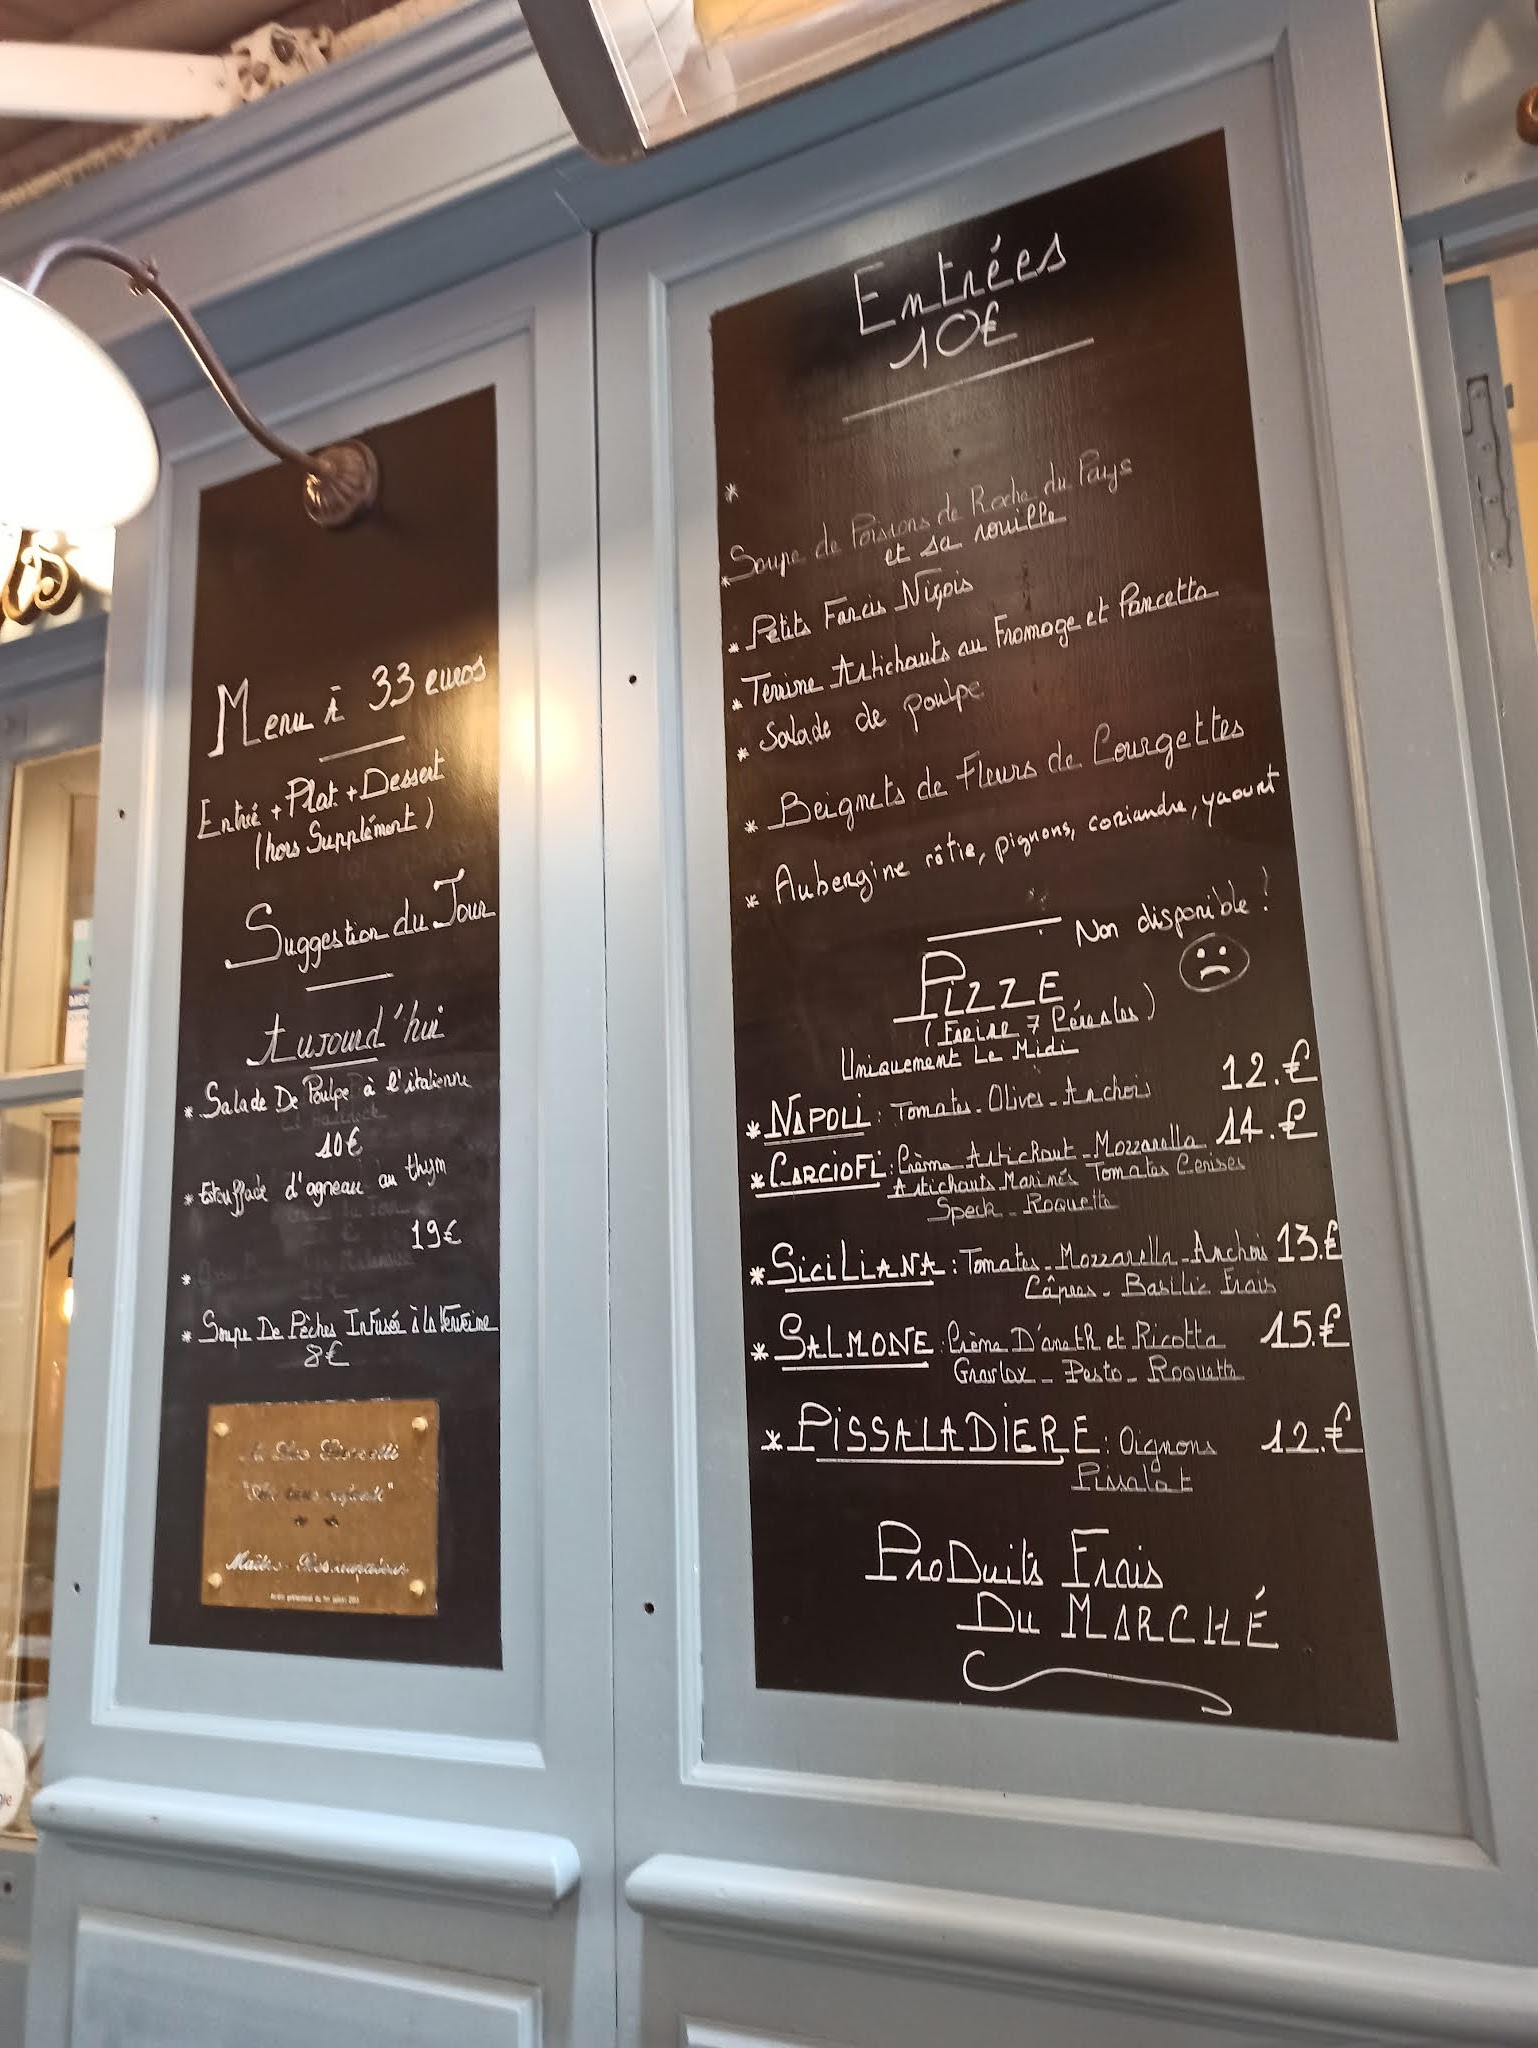 Menu À 33 euros
Entrée + Plat + Dessert
(hors Supplément)
Suggestion du Jour
Aujourd'hui
* Salade De Poulpe à l'italienne
10€
* Estouffade d'agneau au thym
19€
*
* Soupe De Pêches Infusée à la Verveine
8€
Maître - Restaurateur
Entrées
10€
*
Soupe de Poissons de Roche du Pays
et sa rouille
* Petits Farcis Niçois
* Terrine Artichauts au Fromage et Pancetta
* Salade de poulpe
* Beignets de Fleurs de Courgettes
* Aubergine rôtie, pignons, coriandre, yaourt
Non disponible !
PIZZE
(Farine 7 Céréales)
Uniquement Le Midi
* NAPOLI : Tomates - Olives - Anchois 12.€
* CARCIOFI : Crème Artichaut - Mozzarella 14.€
Artichauts Marinés Tomates Cerises
Speck - Roquette
* SICILIANA : Tomates - Mozzarella - Anchois 13.€
Câpres - Basilic Frais
* SALMONE : Crème D'aneth et Ricotta 15.€
Gravlax - Pesto - Roquette
* PISSALADIERE : Oignons 12.€
Pissalat
ProDuits Frais
Du MARCHÉ